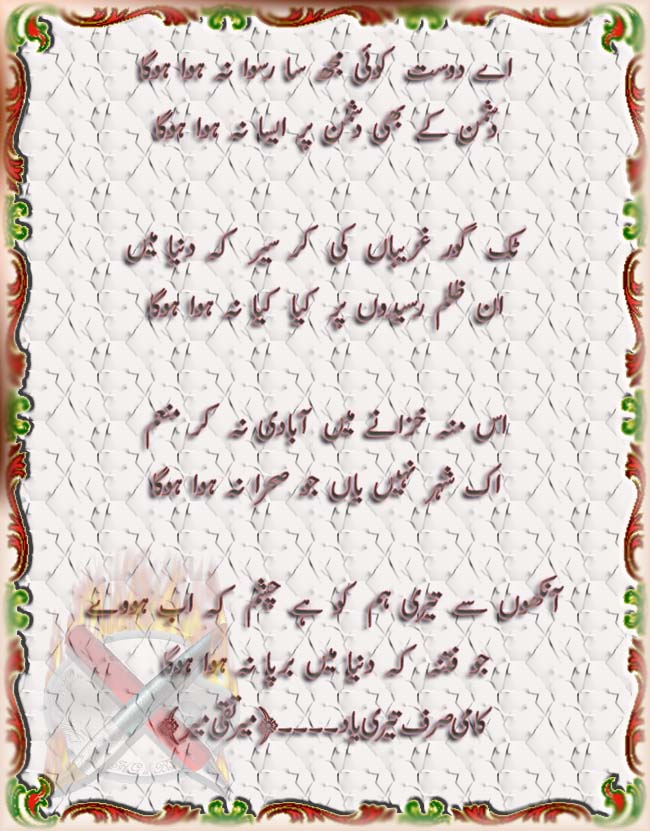 اے دوست کوئی مجھ سا رسوا نہ ہوا ہوگا
دشمن کے بھی دشمن پر ایسا نہ ہوا ہوگا
ٹک گور غریباں کی کر سیر کہ دنیا میں
ان ظلم رسیدوں پر کیا کیا نہ ہوا ہوگا
اس منہ خزانے میں آبادی نہ کر منعم
اک شہر نہیں یاں جو صحرا نہ ہوا ہوگا
آنکھوں سے تیری ہم کو ہے چشم کہ اب ہووے
جو فتنہ کہ دنیا میں برپا نہ ہوا ہوگا
صرف تیری یاد۔۔۔۔﴿میر تقی میر﴾